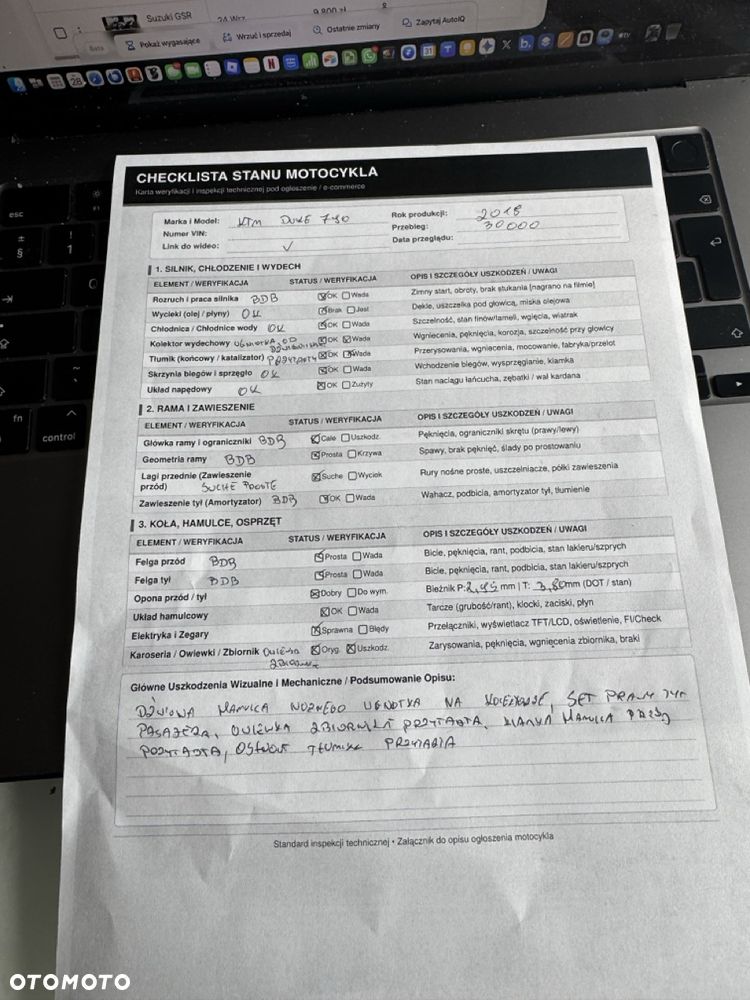 Suzuki GSR
24 Wrz
9 800 zł
Pokaż wygasające
Wrzuć i sprzedaj
Ostatnie zmiany
Zapytaj AutoIQ
esc
fn
control
CHECKLISTA STANU MOTOCYKLA
Karta weryfikacji i inspekcji technicznej pod ogłoszenie / e-commerce
Marka i Model: KTM DUKE 790 Rok produkcji: 2018
Numer VIN: Przebieg: 30000
Link do wideo: ✓ Data przeglądu:
1. SILNIK, CHŁODZENIE I WYDECH
ELEMENT / WERYFIKACJA STATUS / WERYFIKACJA OPIS I SZCZEGÓŁY USZKODZEŃ / UWAGI
Rozruch i praca silnika BDB ☒OK ☐Wada Zimny start, obroty, brak stukania [nagrano na filmie]
Wycieki (olej / płyny) OK ☒Brak ☐Jest Dekle, uszczelka pod głowicą, miska olejowa
Chłodnica / Chłodnice wody OK ☒OK ☐Wada Szczelność, stan finów/lameli, wgięcia, wiatrak
Kolektor wydechowy UGNIOTKA OD DŹWIGNI ☒OK ☒Wada Wgniecenia, pęknięcia, korozja, szczelność przy głowicy
Tłumik (końcowy / katalizator) PRZYTARTY ☒OK ☒Wada Przerysowania, wgniecenia, mocowanie, fabryka/przelot
Skrzynia biegów i sprzęgło OK ☒OK ☐Wada Wchodzenie biegów, wysprzęganie, klamka
Układ napędowy OK ☒OK ☐Zużyty Stan naciągu łańcucha, zębatki / wał kardana
2. RAMA I ZAWIESZENIE
ELEMENT / WERYFIKACJA STATUS / WERYFIKACJA OPIS I SZCZEGÓŁY USZKODZEŃ / UWAGI
Główka ramy i ograniczniki BDB ☒Całe ☐Uszkodz. Pęknięcia, ograniczniki skrętu (prawy/lewy)
Geometria ramy BDB ☒Prosta ☐Krzywa Spawy, brak pęknięć, ślady po prostowaniu
Lagi przednie (Zawieszenie ☒Suche ☐Wyciek Rury nośne proste, uszczelniacze, półki zawieszenia
przód) SUCHE PROSTE
Zawieszenie tył (Amortyzator) BDB ☒OK ☐Wada Wahacz, podbicia, amortyzator tył, tłumienie
3. KOŁA, HAMULCE, OSPRZĘT
ELEMENT / WERYFIKACJA STATUS / WERYFIKACJA OPIS I SZCZEGÓŁY USZKODZEŃ / UWAGI
Felga przód BDB ☒Prosta ☐Wada Bicie, pęknięcia, rant, podbicia, stan lakieru/szprych
Felga tył BDB ☒Prosta ☐Wada Bicie, pęknięcia, rant, podbicia, stan lakieru/szprych
Opona przód / tył ☒Dobry ☐Do wym. Bieżnik P: 2,45 mm | T: 3,80mm (DOT / stan)
Układ hamulcowy ☒OK ☐Wada Tarcze (grubość/rant), klocki, zaciski, płyn
Elektryka i Zegary ☒Sprawna ☐Błędy Przełączniki, wyświetlacz TFT/LCD, oświetlenie, FI/Check
Karoseria / Owiewki / Zbiornik OWIEWKA ZBIORNIKA ☒Oryg. ☒Uszkodz. Zarysowania, pęknięcia, wgniecenia zbiornika, braki
Główne Uszkodzenia Wizualne i Mechaniczne / Podsumowanie Opisu:
DŹWIGNIA HAMULCA NOŻNEGO UGNIOTKA NA KOLEKTORZE, SET PRAWY TYŁ
PASAŻERA, OWIEWKA ZBIORNIKA PRZYTARTA, KLAMKA HAMULCA PRZÓD
PRZYTARTA, OSŁONA TŁUMIKA PRZYTARTA
Standard inspekcji technicznej • Załącznik do opisu ogłoszenia motocykla
OTOMOTO